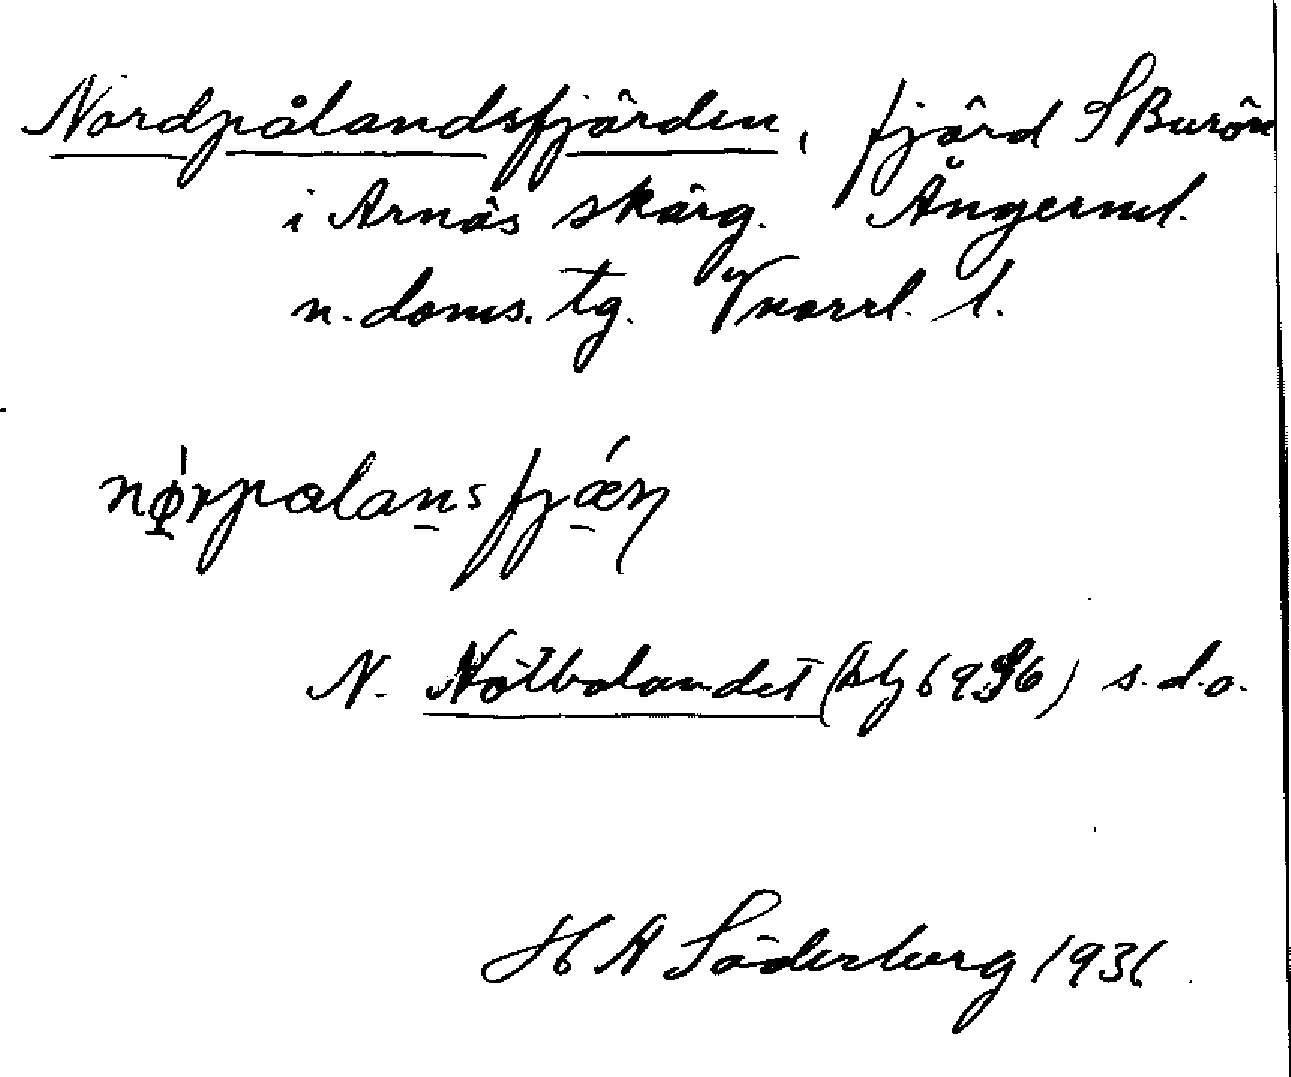 Nordpålandsfjärden, fjärd S Burön
i Arnäs skärg. Ångerml.
n. doms. tg. Vnorrl. l.
nǿrpalansfjǽṇ
N. Nötbolandet (hfj 6956) s.d.o.
H A Söderberg 1931